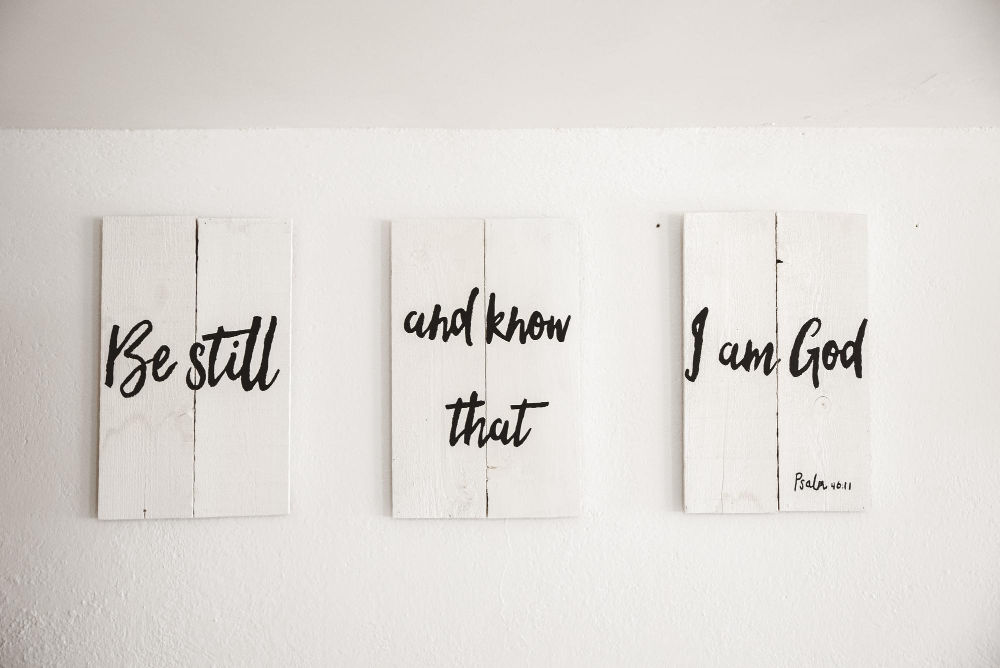 Be still
and know
that
I am God
Psalm 46:11